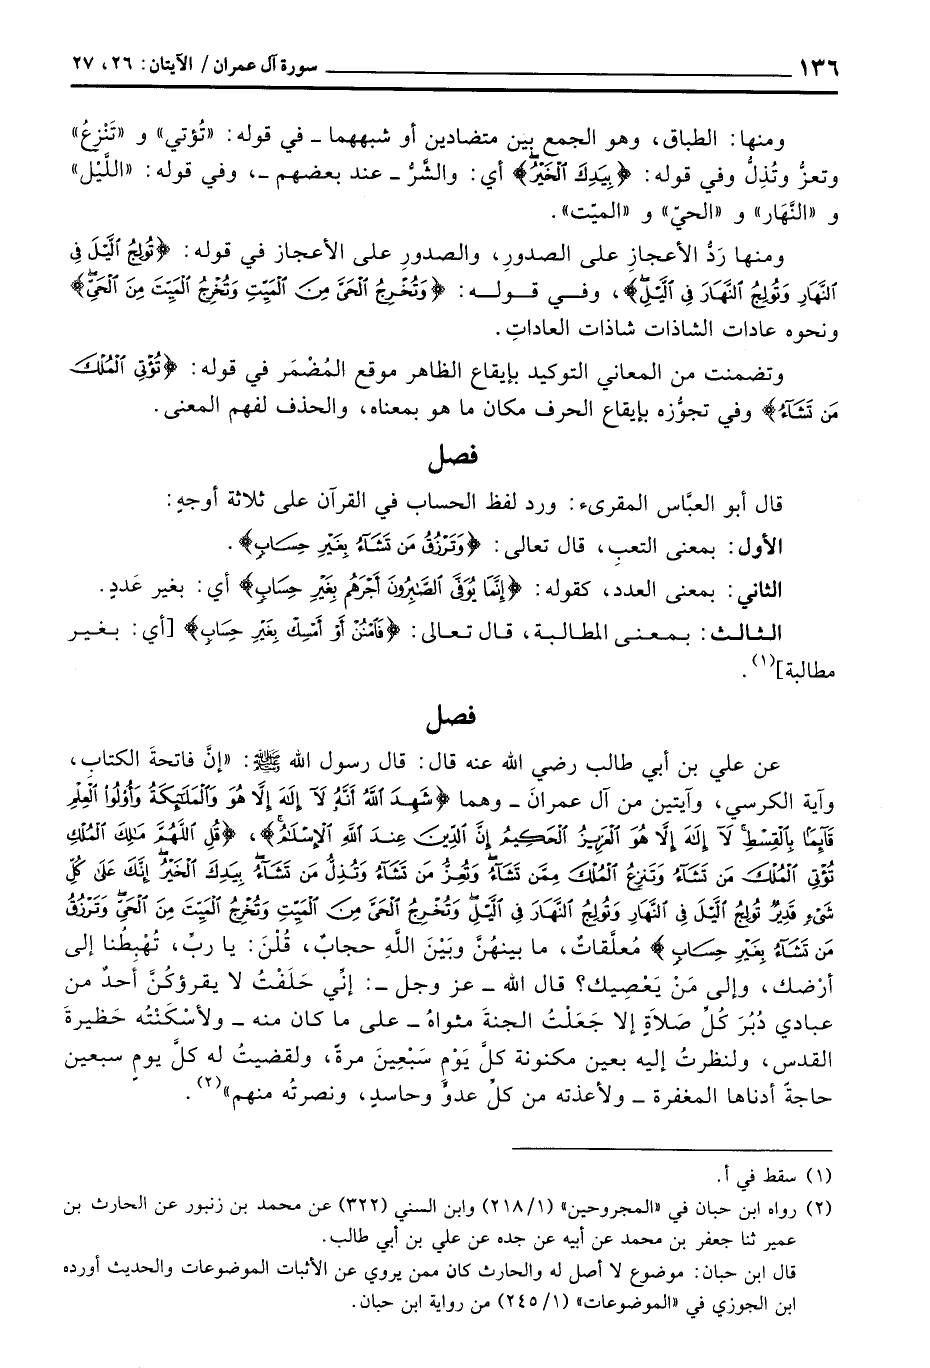 ١٣٦ سورة آل عمران / الآيتان: ٢٦، ٢٧
ومنها: الطباق، وهو الجمع بين متضادين أو شبههما ـ في قوله: «تُؤتي» و «تَنْزِعُ»
وتعزُّ وتُذِلُّ وفي قوله: ﴿بِيَدِكَ ٱلْخَيْرُ﴾ أي: والشَّرُّ ـ عند بعضهم ـ، وفي قوله: «اللَّيْل»
و «النَّهار» و «الحيّ» و «الميّت».
ومنها رَدُّ الأعجازِ على الصدورِ، والصدورِ على الأعجاز في قوله: ﴿تُولِجُ ٱلَّيْلَ فِى
ٱلنَّهَارِ وَتُولِجُ ٱلنَّهَارَ فِى ٱلَّيْلِ﴾، وفـي قـولـه: ﴿وَتُخْرِجُ ٱلْحَىَّ مِنَ ٱلْمَيِّتِ وَتُخْرِجُ ٱلْمَيِّتَ مِنَ ٱلْحَىِّ﴾
ونحوه عادات الشاذات شاذات العاداتِ.
وتضمنت من المعاني التوكيد بإيقاع الظاهر موقع المُضْمَر في قوله: ﴿تُؤْتِى ٱلْمُلْكَ
مَن تَشَآءُ﴾ وفي تجوُّزه بإيقاع الحرف مكان ما هو بمعناه، والحذف لفهم المعنى.
فصل
قال أبو العبَّاس المقرىء: ورد لفظ الحساب في القرآن على ثلاثة أوجهٍ:
الأول: بمعنى التعبِ، قال تعالى: ﴿وَتَرْزُقُ مَن تَشَآءُ بِغَيْرِ حِسَابٍ﴾.
الثاني: بمعنى العدد، كقوله: ﴿إِنَّمَا يُوَفَّى ٱلصَّـٰبِرُونَ أَجْرَهُم بِغَيْرِ حِسَابٍ﴾ أي: بغير عَددٍ.
الـثـالـث: بـمـعـنـى المطالبة، قال تـعـالـى: ﴿فَٱمْنُنْ أَوْ أَمْسِكْ بِغَيْرِ حِسَابٍ﴾ [أي: بـغـيـر
مطالبة](١).
فصل
عن علي بن أبي طالب رضي الله عنه قال: قال رسول الله ﷺ: «إنَّ فاتحةَ الكتابِ،
وآية الكرسي، وآيتين من آل عمرانَ ـ وهما ﴿شَهِدَ ٱللَّهُ أَنَّهُ لَآ إِلَـٰهَ إِلَّا هُوَ وَٱلْمَلَـٰٓئِكَةُ وَأُولُوا ٱلْعِلْمِ
قَآئِمًۢا بِٱلْقِسْطِ لَآ إِلَـٰهَ إِلَّا هُوَ ٱلْعَزِيزُ ٱلْحَكِيمُ إِنَّ ٱلدِّينَ عِندَ ٱللَّهِ ٱلْإِسْلَـٰمُ﴾، ﴿قُلِ ٱللَّهُمَّ مَـٰلِكَ ٱلْمُلْكِ
تُؤْتِى ٱلْمُلْكَ مَن تَشَآءُ وَتَنزِعُ ٱلْمُلْكَ مِمَّن تَشَآءُ وَتُعِزُّ مَن تَشَآءُ وَتُذِلُّ مَن تَشَآءُ بِيَدِكَ ٱلْخَيْرُ إِنَّكَ عَلَىٰ كُلِّ
شَىْءٍ قَدِيرٌ تُولِجُ ٱلَّيْلَ فِى ٱلنَّهَارِ وَتُولِجُ ٱلنَّهَارَ فِى ٱلَّيْلِ وَتُخْرِجُ ٱلْحَىَّ مِنَ ٱلْمَيِّتِ وَتُخْرِجُ ٱلْمَيِّتَ مِنَ ٱلْحَىِّ وَتَرْزُقُ
مَن تَشَآءُ بِغَيْرِ حِسَابٍ﴾ مُعلَّقاتٌ، ما بينهُنَّ وبَيْنَ اللَّهِ حجابٌ، قُلْنَ: يا ربِّ، تُهْبِطُنا إلى
أرْضك، وإلى مَنْ يَعْصِيك؟ قال الله ـ عز وجل ـ: إنِّي حَلَفْتُ لا يقرؤكُنَّ أحدٌ من
عبادي دُبُرَ كُلِّ صلاَةٍ إلا جَعَلْتُ الجنةَ مثواهُ ـ على ما كان منه ـ ولأسْكَنْتُه حَظيرةَ
القدس، ولنظرتُ إليه بعين مكنونة كلَّ يَوْمٍ سَبْعِينَ مرةً، ولقضيتُ له كلَّ يومٍ سبعين
حاجةً أدناها المغفرة ـ ولأعذته من كلِّ عدوٍّ وحاسدٍ، ونصرتُه منهم»(٢).
(١) سقط في أ.
(٢) رواه ابن حبان في «المجروحين» (١/٢١٨) وابن السني (٣٢٢) عن محمد بن زنبور عن الحارث بن
عمير ثنا جعفر بن محمد عن أبيه عن جده عن علي بن أبي طالب.
قال ابن حبان: موضوع لا أصل له والحارث كان ممن يروي عن الأثبات الموضوعات والحديث أورده
ابن الجوزي في «الموضوعات» (١/٢٤٥) من رواية ابن حبان.